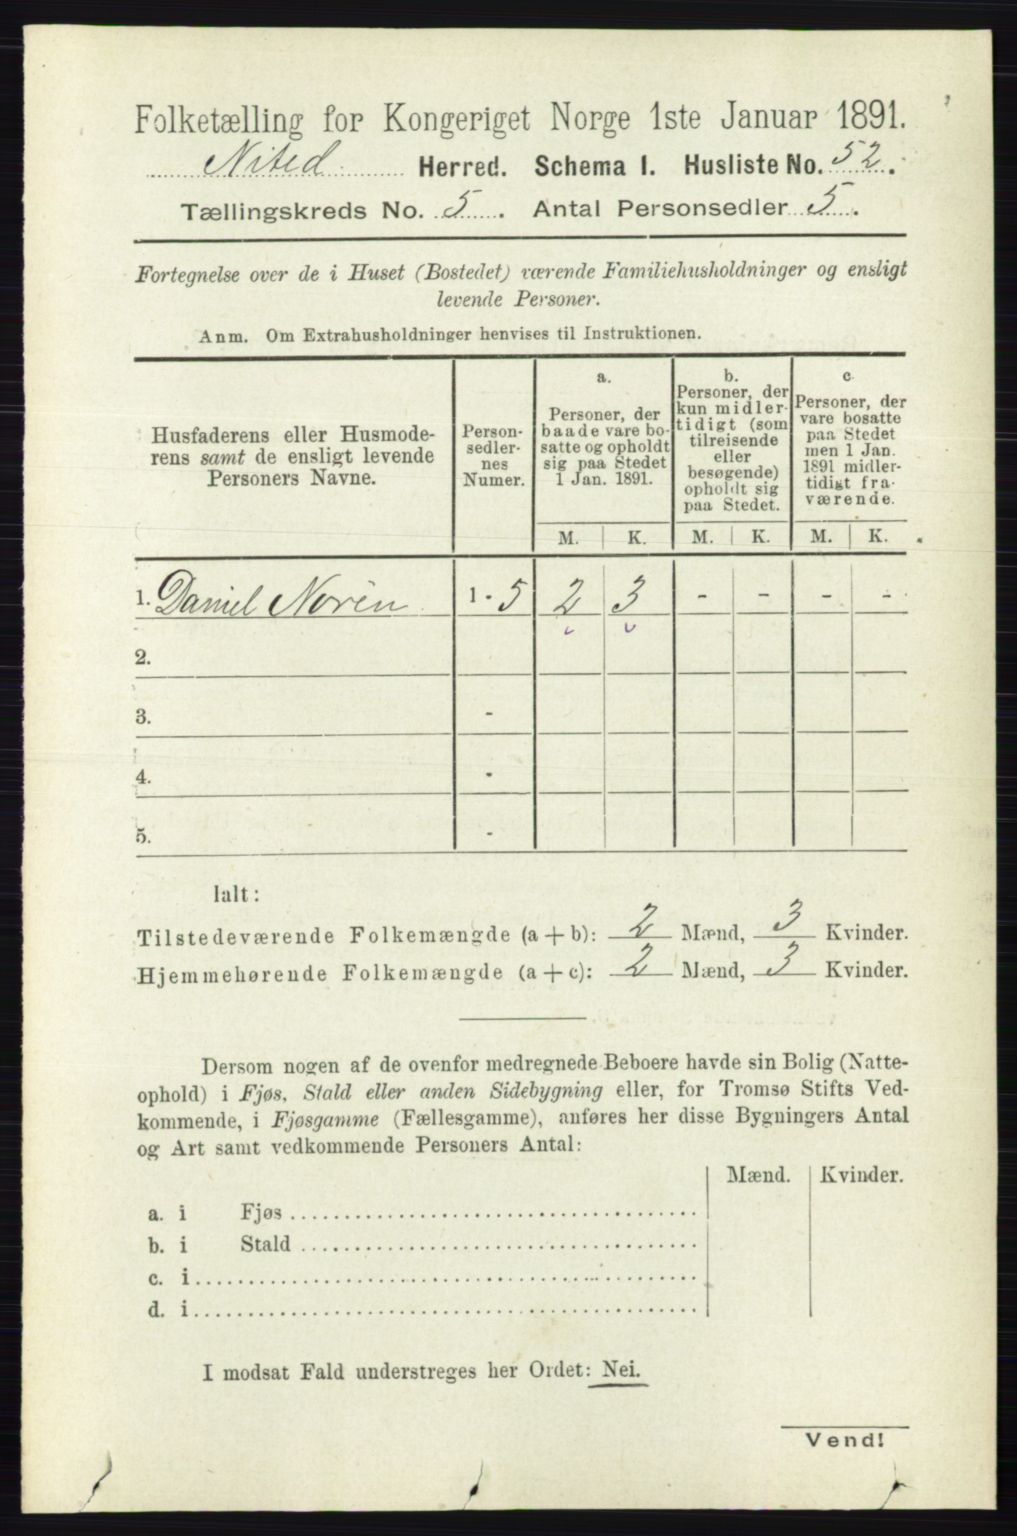 Folketælling for Kongeriget Norge 1ste Januar 1891.
Nited Herred. Schema I. Husliste No. 52.
Tællingskreds No. 5. Antal Personsedler 5.
Fortegnelse over de i Huset (Bostedet) værende Familiehusholdninger og ensligt
levende Personer.
Anm. Om Extrahusholdninger henvises til Instruktionen.
Husfaderens eller Husmode-
rens samt de ensligt levende
Personers Navne.
Person-
sedler-
nes
Numer.
a.
Personer, der
baade vare bo-
satte og opholdt
sig paa Stedet
1 Jan. 1891.
b.
Personer, der
kun midler-
tidigt (som
tilreisende
eller
besøgende)
opholdt sig
paa Stedet.
c.
Personer, der
vare bosatte
paa Stedet
men 1 Jan.
1891 midler-
tidigt fra-
værende.
M. K. M. K. M. K.
1. Daniel Norén 1 - 5 2 3 - - - -
2.
3. -
4. -
5. -
Ialt:
Tilstedeværende Folkemængde (a + b): 2 Mænd, 3 Kvinder.
Hjemmehørende Folkemængde (a + c): 2 Mænd, 3 Kvinder.
Dersom nogen af de ovenfor medregnede Beboere havde sin Bolig (Natte-
ophold) i Fjøs, Stald eller anden Sidebygning eller, for Tromsø Stifts Ved-
kommende, i Fjøsgamme (Fællesgamme), anføres her disse Bygningers Antal
og Art samt vedkommende Personers Antal:
Mænd. Kvinder.
a. i Fjøs
b. i Stald
c. i
d. i
I modsat Fald understreges her Ordet: Nei.
Vend!